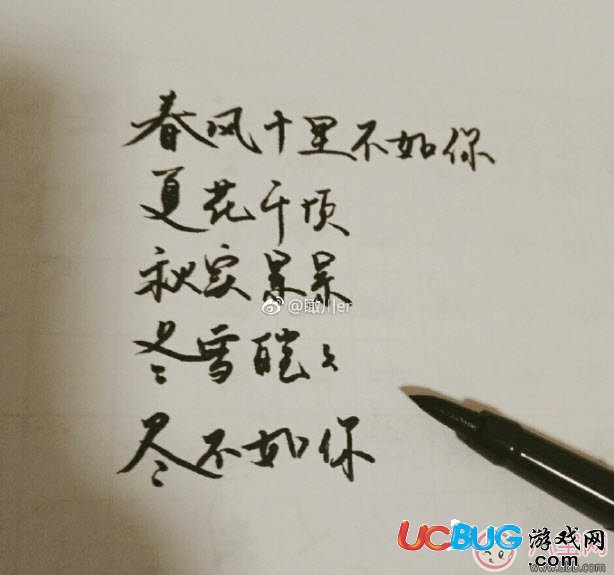 春风十里不如你
夏花千顷
秋实杲杲
@瞰川er
冬雪皑々
尽不如你
UCBUG游戏网
.com